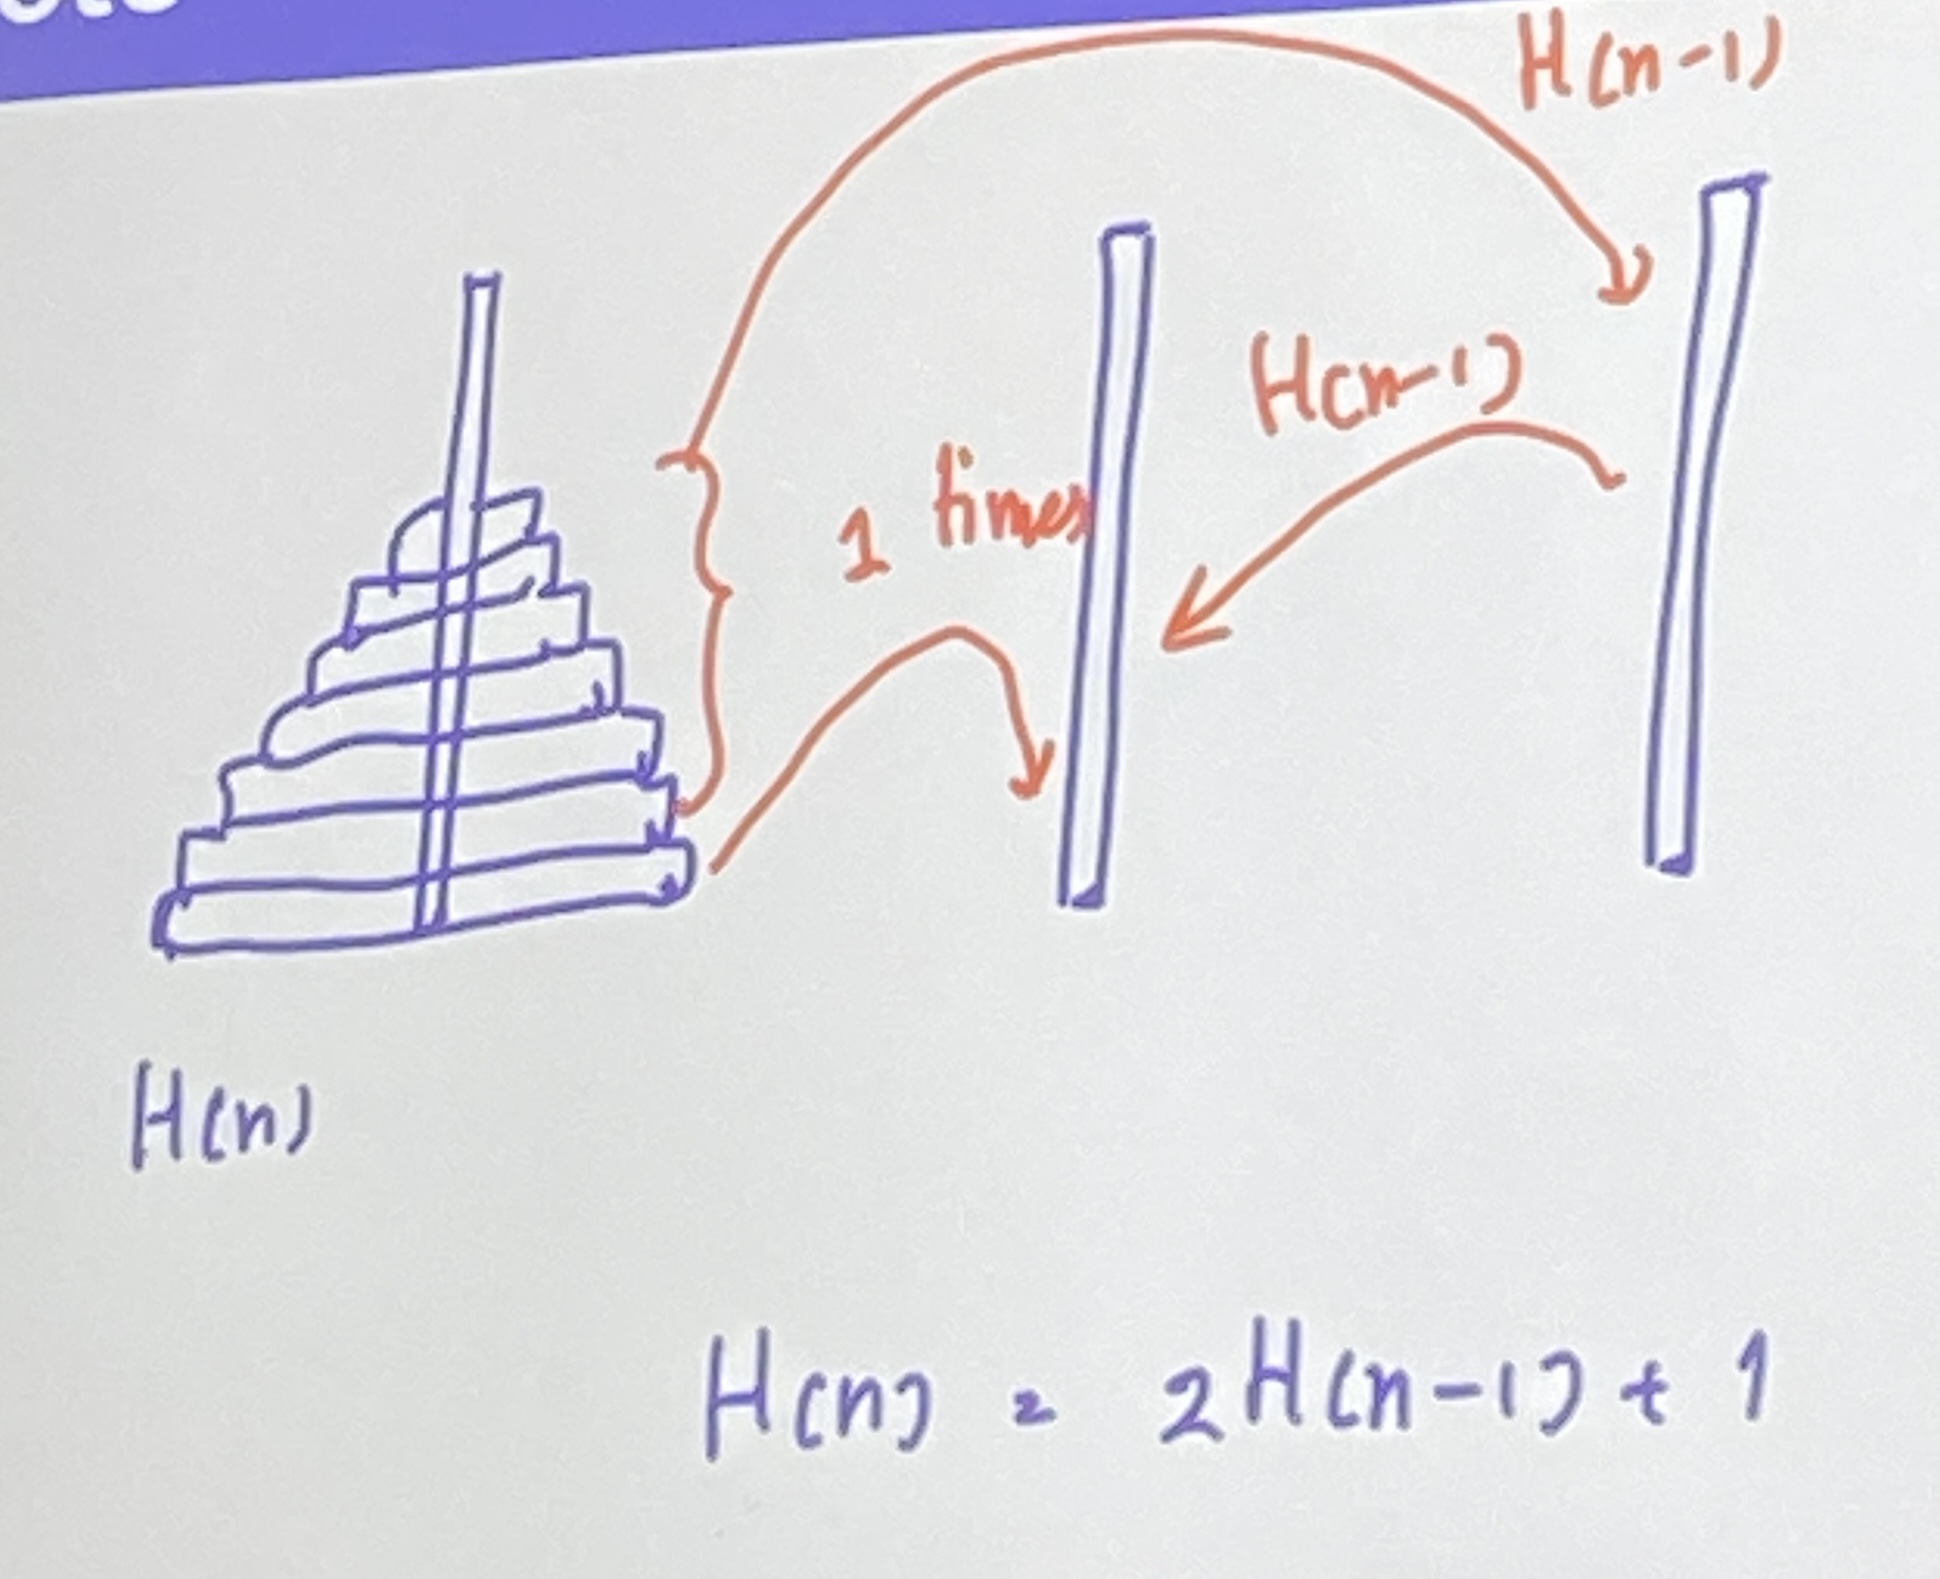 H(n-1)
H(n-1)
1 times
H(n)
H(n) = 2H(n-1) + 1